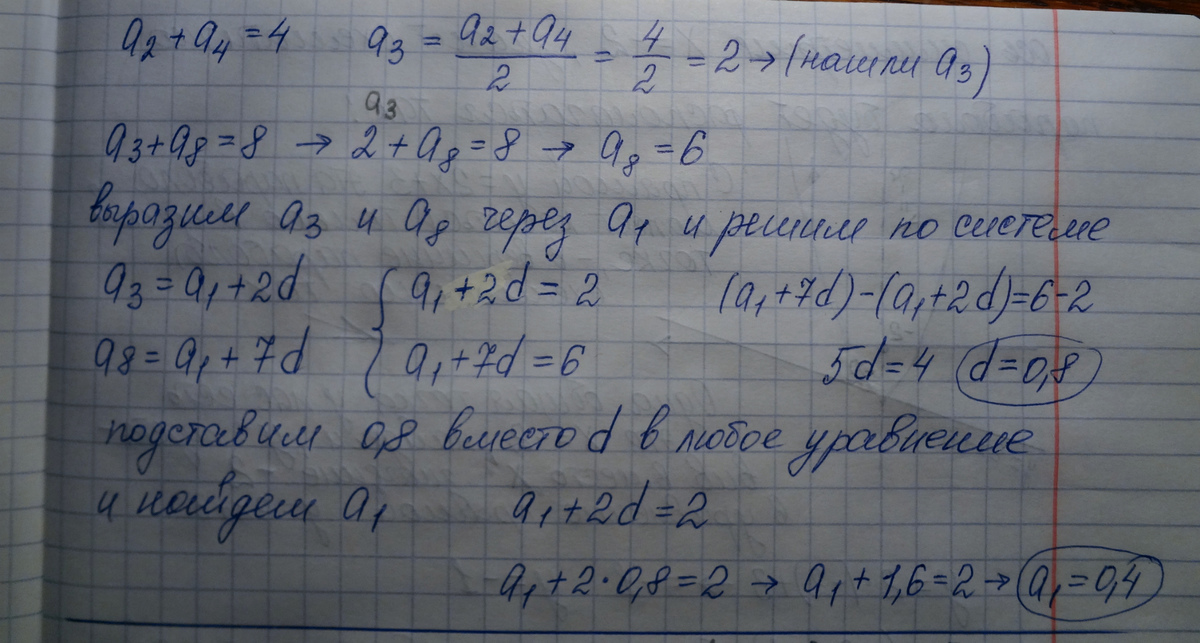 a2 + a4 = 4   a3 = (a2 + a4)/2 = 4/2 = 2 → (нашли a3)
a3
a3 + a8 = 8 → 2 + a8 = 8 → a8 = 6
выразим a3 и a8 через a1 и решим по системе
a3 = a1 + 2d   { a1 + 2d = 2   (a1 + 7d) - (a1 + 2d) = 6 - 2
a8 = a1 + 7d   { a1 + 7d = 6   5d = 4   d = 0,8
подставим 0,8 вместо d в любое уравнение
и найдем a1   a1 + 2d = 2
a1 + 2·0,8 = 2 → a1 + 1,6 = 2 → a1 = 0,4